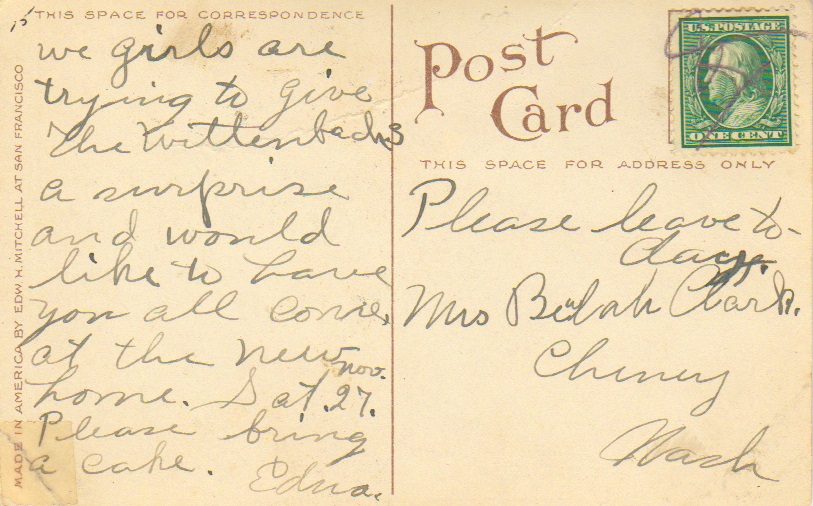 THIS SPACE FOR CORRESPONDENCE
we girls are
trying to give
the Wittenbachs
a surprise
and would
like to have
you all come,
at the new
home. Sat. Nov. 27.
Please bring
a cake.
Edna.
MADE IN AMERICA BY EDW. H. MITCHELL AT SAN FRANCISCO
Post
Card
U.S. POSTAGE
ONE CENT
THIS SPACE FOR ADDRESS ONLY
Please leave to-
day.
Mrs Beulah Clark.
Cheney
Wash